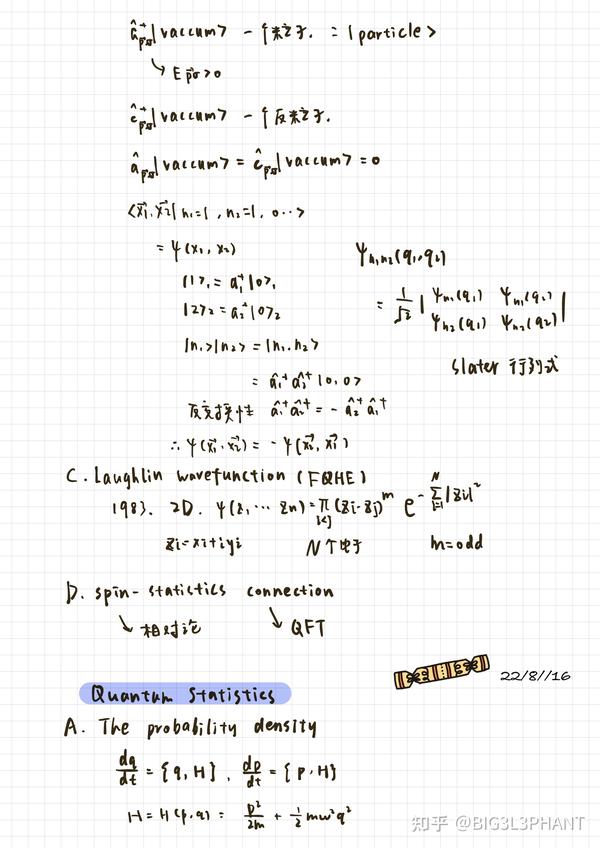 â⁺_{p⃗σ}|vaccum> 一个粒子. = |particle>
↳ E_{p⃗σ}>0
ĉ⁺_{p⃗σ}|vaccum> 一个反粒子.
â_{p⃗σ}|vaccum> = ĉ_{p⃗σ}|vaccum> = 0
<x⃗₁, x⃗₂| n₁=1, n₂=1, 0···>
= ψ(x₁, x₂)
|1>₁ = a₁⁺|0>₁
|2>₂ = a₂⁺|0>₂
|n₁>|n₂> = |n₁, n₂>
= â₁⁺ â₂⁺ |0,0>
反交换性 â₁⁺ â₂⁺ = - â₂⁺ â₁⁺
∴ ψ(x⃗₁, x⃗₂) = - ψ(x⃗₂, x⃗₁)
ψ_{n₁n₂}(q₁,q₂)
= 1/√2 | ψ_{n₁}(q₁) ψ_{n₁}(q₂)
ψ_{n₂}(q₁) ψ_{n₂}(q₂) |
Slater 行列式
C. Laughlin wavefunction (FQHE)
1983. 2D. ψ(z₁ ··· zn) = ∏_{i<j} (zi - zj)^m e^{-∑_{i=1}^{N} |zi|²}
zi = xi + iyi N个电子 m=odd
D. spin-statistics connection
↘ 相对论 ↘ QFT
22/8//16
Quantum Statistics
A. The probability density
dq/dt = {q, H}, dp/dt = {p, H}
H = H(p,q) = p²/2m + 1/2 mω²q²
知乎 @BIG3L3PHANT